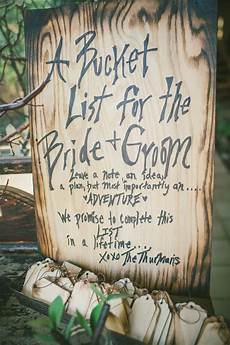 A Bucket
List for the
Bride + Groom
Leave a note, an idea,
a plan, but most importantly an....
♥ADVENTURE♥
We promise to complete this
LIST
in a lifetime...
xoxo The Thurmans